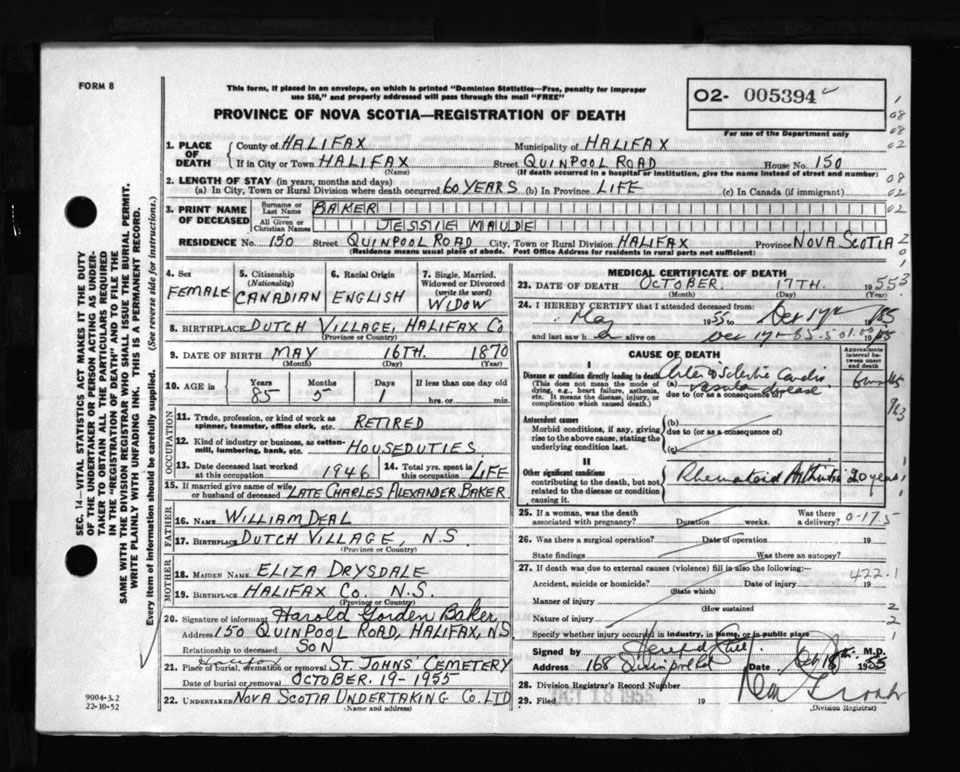 FORM 8
This form, if placed in an envelope, on which is printed "Dominion Statistics—Free, penalty for improper
use $50," and properly addressed will pass through the mail "FREE"
PROVINCE OF NOVA SCOTIA—REGISTRATION OF DEATH
02- 005394
For use of the Department only
1. PLACE OF DEATH
County of HALIFAX Municipality of HALIFAX
If in City or Town HALIFAX Street QUINPOOL ROAD House No. 150
(Name) (If death occurred in a hospital or institution, give the name instead of street and number)
2. LENGTH OF STAY (in years, months and days)
(a) In City, Town or Rural Division where death occurred 60 YEARS (b) In Province LIFE (c) In Canada (if immigrant)
3. PRINT NAME OF DECEASED
Surname or Last Name BAKER
All Given or Christian Names JESSIE MAUDE
RESIDENCE No. 150 Street QUINPOOL ROAD City, Town or Rural Division HALIFAX Province NOVA SCOTIA
(Residence means usual place of abode. Post Office Address for residents in rural parts not sufficient)
4. Sex FEMALE
5. Citizenship (Nationality) CANADIAN
6. Racial Origin ENGLISH
7. Single, Married, Widowed or Divorced (write the word) WIDOW
8. BIRTHPLACE DUTCH VILLAGE, HALIFAX CO
(Province or Country)
9. DATE OF BIRTH MAY 16TH. 1870
(Month) (Day) (Year)
10. AGE in Years Months Days If less than one day old
85 5 1 hrs. or min.
OCCUPATION
11. Trade, profession, or kind of work as spinner, teamster, office clerk, etc. RETIRED
12. Kind of industry or business, as cotton-mill, lumbering, bank, etc. HOUSEDUTIES
13. Date deceased last worked at this occupation 1946 14. Total yrs. spent in LIFE
15. If married give name of wife or husband of deceased LATE CHARLES ALEXANDER BAKER
FATHER
16. NAME WILLIAM DEAL
17. BIRTHPLACE DUTCH VILLAGE, N.S.
(Province or Country)
MOTHER
18. MAIDEN NAME ELIZA DRYSDALE
19. BIRTHPLACE HALIFAX CO. N.S.
(Province or Country)
20. Signature of informant Harold Gorden Baker
Address 150 QUINPOOL ROAD, HALIFAX, NS
Relationship to deceased SON
21. Place of burial, cremation or removal Halifax ST. JOHNS CEMETERY
Date of burial or removal OCTOBER. 19-1955
22. UNDERTAKER NOVA SCOTIA UNDERTAKING CO. LTD
(Name and address)
MEDICAL CERTIFICATE OF DEATH
23. DATE OF DEATH OCTOBER. 17TH. 1955
(Month) (Day) (Year)
24. I HEREBY CERTIFY that I attended deceased from:
May 1955 to
and last saw h alive on
CAUSE OF DEATH
Approximate interval between onset and death
I
Disease or condition directly leading to death
(This does not mean the mode of dying, e.g., heart failure, asthenia, etc. It means the disease, injury, or complication which caused death.)
(a) Arterio Sclerotic Cardio vascular disease
due to (or as a consequence of)
Antecedent causes
Morbid conditions, if any, giving rise to the above cause, stating the underlying condition last.
(b)
due to (or as a consequence of)
(c)
II
Other significant conditions
contributing to the death, but not related to the disease or condition causing it
Rheumatoid Arthritis 20 years
25. If a woman, was the death associated with pregnancy? Duration weeks. Was there a delivery? 0-175
26. Was there a surgical operation? Date of operation 19
State findings Was there an autopsy?
27. If death was due to external causes (violence) fill in also the following:—
422.1
Accident, suicide or homicide? Date of injury 19
(State which)
Manner of injury
(How sustained
Nature of injury
Specify whether injury occurred in industry, in home, or in public place
Signed by M.D.
Address 168 Quinpool Rd Date Oct 18th 1955
28. Division Registrar's Record Number
29. Filed 19
(Division Registrar)
SEC. 14—VITAL STATISTICS ACT MAKES IT THE DUTY
OF THE UNDERTAKER OR PERSON ACTING AS UNDER-
TAKER TO OBTAIN ALL THE PARTICULARS REQUIRED
IN THE "REGISTRATION OF DEATH" AND TO FILE THE
SAME WITH THE DIVISION REGISTRAR WHO SHALL ISSUE THE BURIAL PERMIT.
WRITE PLAINLY WITH UNFADING INK. THIS IS A PERMANENT RECORD.
Every item of information should be carefully supplied. (See reverse side for instructions.)
9004-3.2
22-10-52